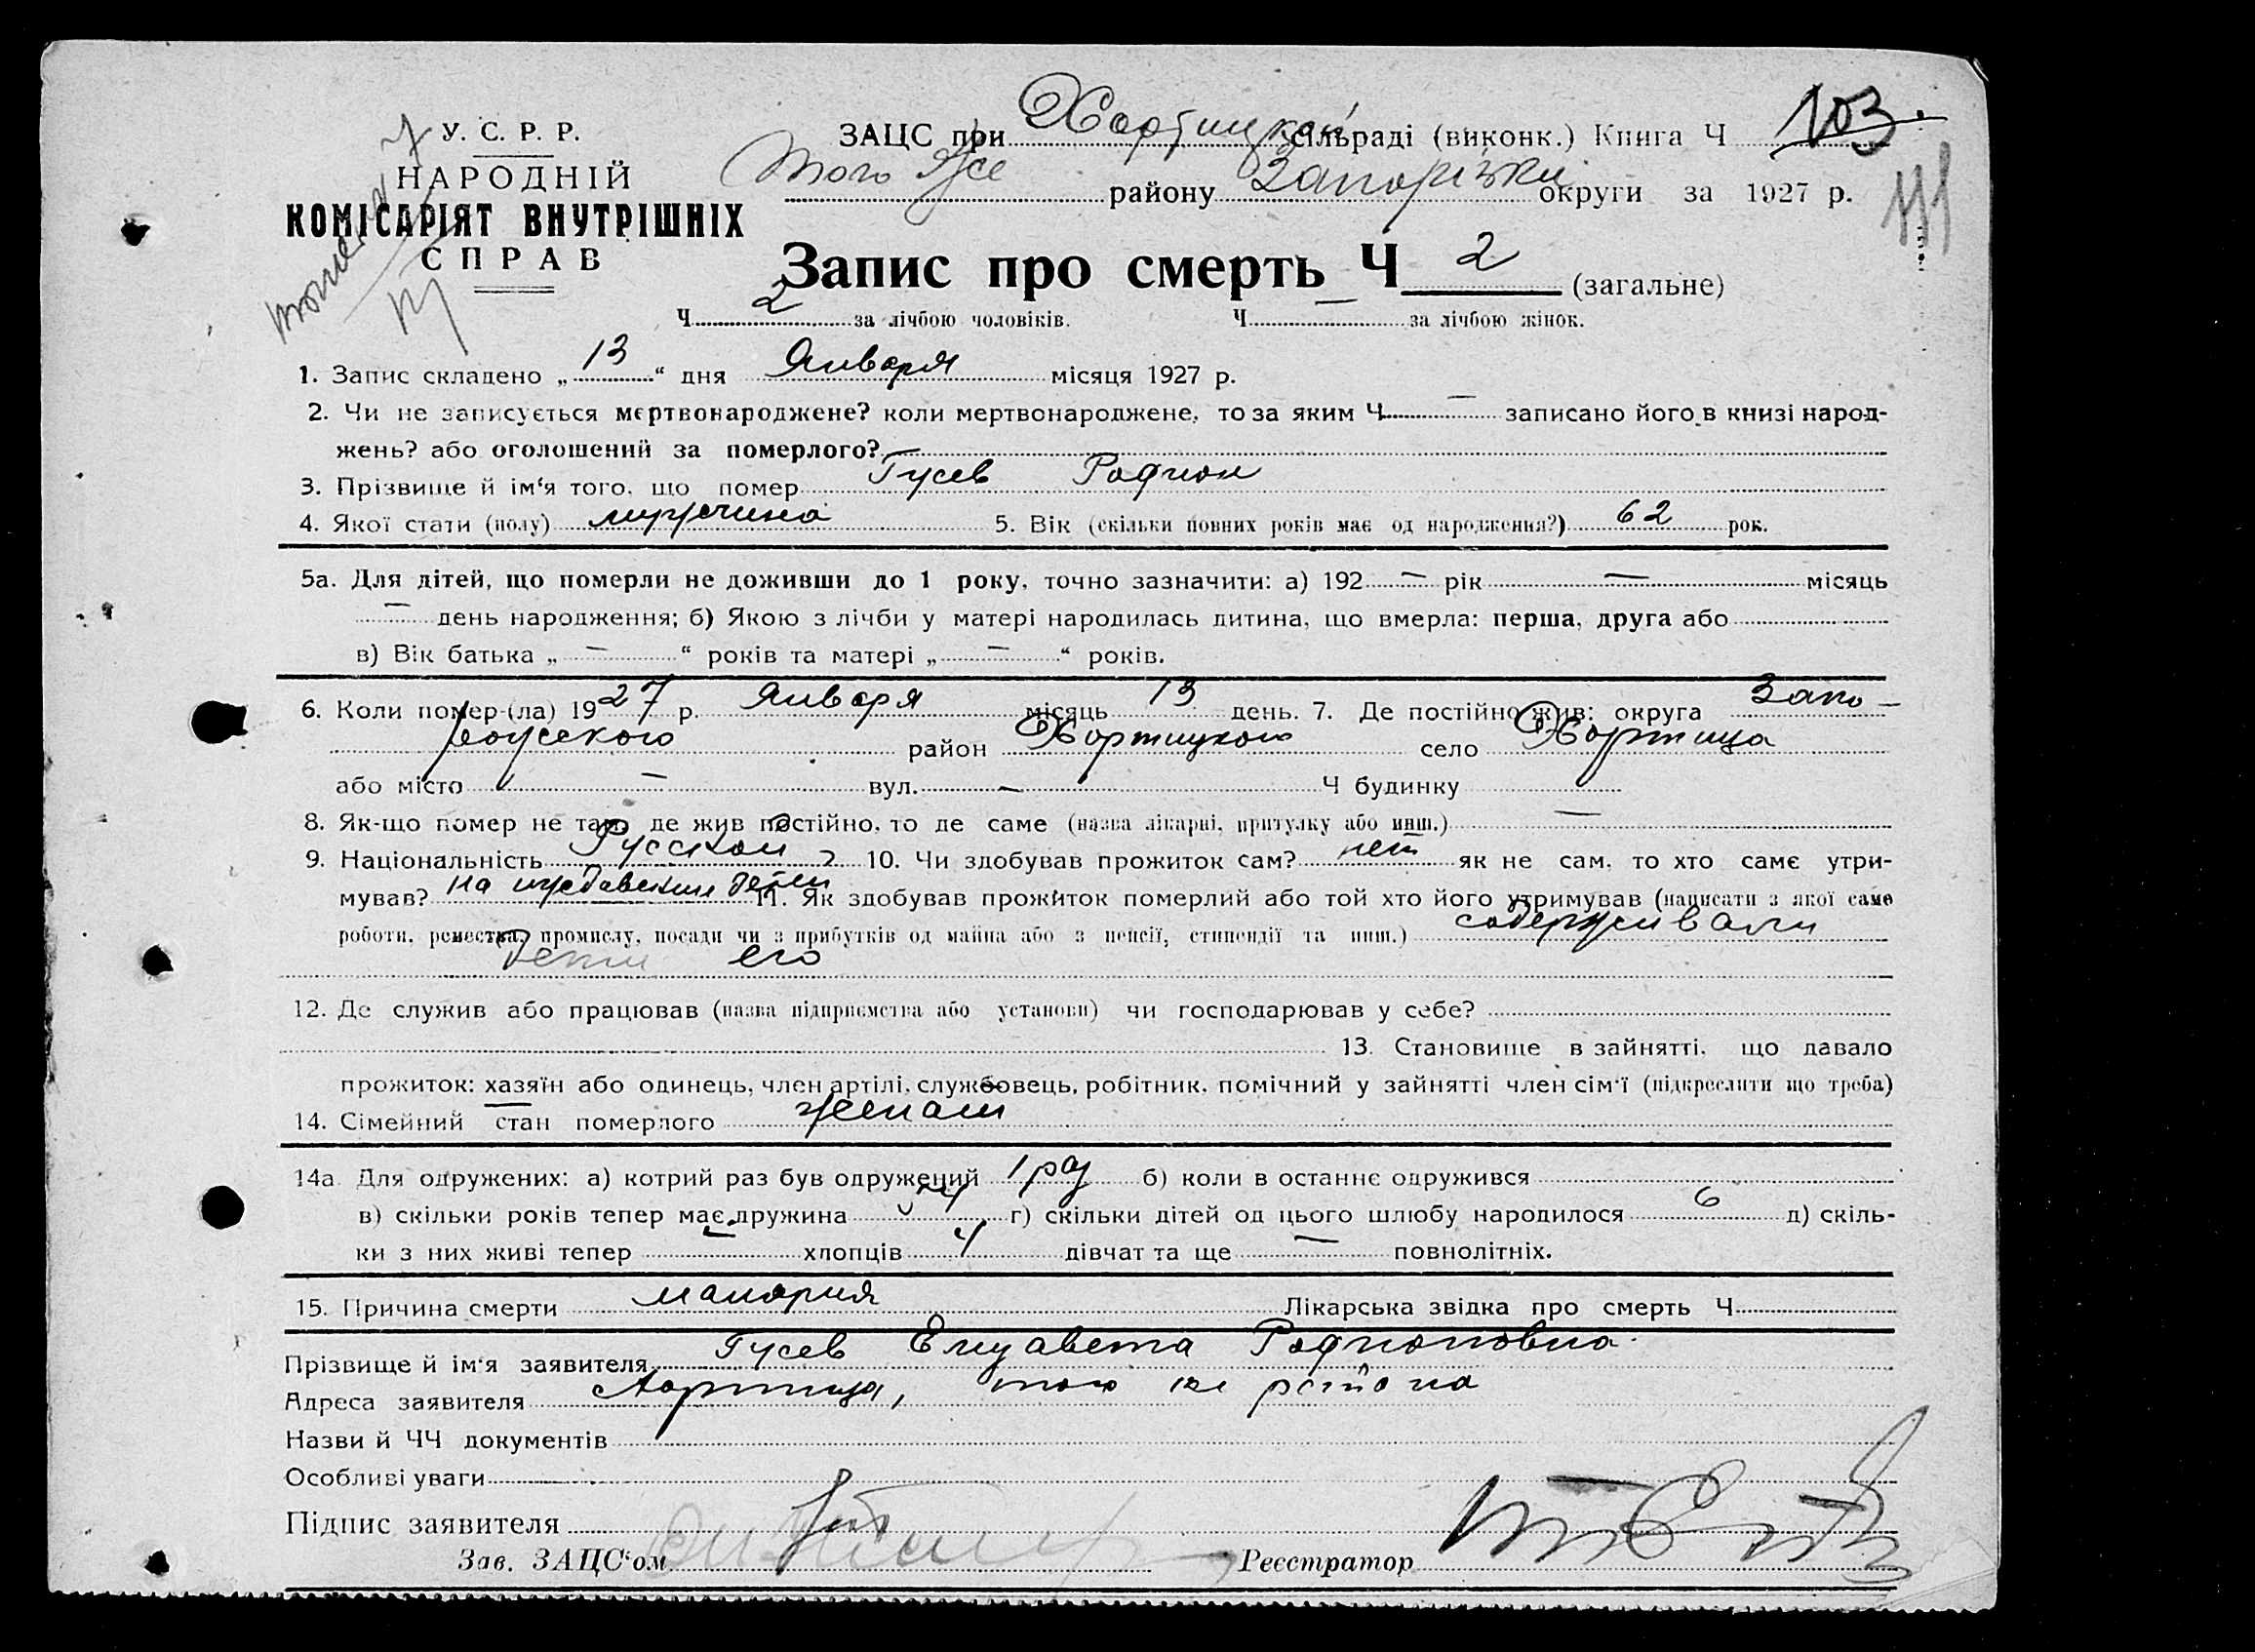 У. С. Р. Р.
НАРОДНІЙ
КОМІСАРІЯТ ВНУТРІШНІХ
СПРАВ
ЗАЦС при Хортицкой сільраді (виконк.) Книга Ч 103
того же району Запорізки округи за 1927 р.
Запис про смерть Ч 2 (загальне)
Ч 2 за лічбою чоловіків. Ч — за лічбою жінок.
1. Запис складено „ 13 “ дня Января місяця 1927 р.
2. Чи не записується мертвонароджене? коли мертвонароджене, то за яким Ч — записано його в книзі народ-
жень? або оголошений за померлого?
3. Прізвище й ім‘я того, що помер Гусев Родион
4. Якої стати (полу) мущчина 5. Вік (скільки повних років має од народження?) 62 рок.
5а. Для дітей, що померли не доживши до 1 року, точно зазначити: а) 192 — рік — місяць
— день народження; б) Якою з лічби у матері народилась дитина, що вмерла: перша, друга або
в) Вік батька „ — “ років та матері „ — “ років.
6. Коли помер-(ла) 1927 р. Января місяць 13 день. 7. Де постійно жив: округа Запо-
рожского район Хортицкого село Хортица
або місто — вул. — Ч будинку
8. Як-що помер не там, де жив постійно, то де саме (назва лікарні, притулку або инш.) —
9. Національність Русской 10. Чи здобував прожиток сам? нет як не сам, то хто саме утри-
мував? на иждевении детей 11. Як здобував прожиток померлий або той хто його утримував (написати з якої саме
роботи, ремества, промислу, посади чи з прибутків од майна або з пенсії, стипендії та инш.) содерживали
дети его
12. Де служив або працював (назва підприємства або установи) чи господарював у себе?
13. Становище в зайнятті, що давало
прожиток: хазяїн або одинець, член артілі, службовець, робітник, помічний у зайнятті член сім‘ї (підкреслити що треба)
14. Сімейний стан померлого женат
14а Для одружених: а) котрий раз був одружений 1 раз б) коли в останнє одружився
в) скільки років тепер має дружина г) скільки дітей од цього шлюбу народилося 6 д) скіль-
ки з них живі тепер хлопців 4 дівчат та ще — повнолітніх.
15. Причина смерти малярия Лікарська звідка про смерть Ч
Прізвище й ім‘я заявителя Гусев Елизавета Родионовна
Адреса заявителя Хортица, того же района
Назви й ЧЧ документів
Особливі уваги
Підпис заявителя
Зав. ЗАЦС‘ом Реєстратор